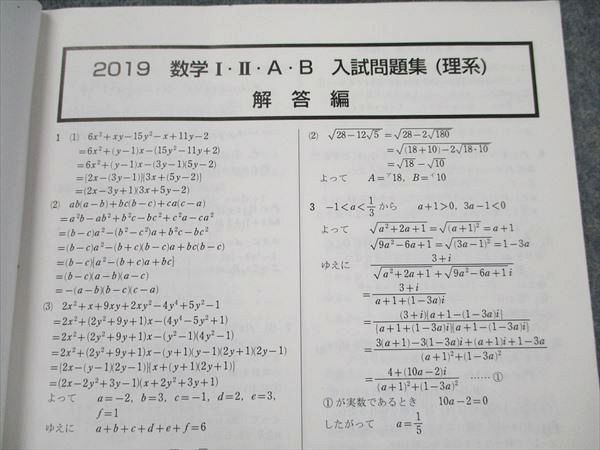 2019 数学Ⅰ・Ⅱ・A・B 入試問題集(理系)
解答編
1 (1) 6x²+xy−15y²−x+11y−2
=6x²+(y−1)x−(15y²−11y+2)
=6x²+(y−1)x−(3y−1)(5y−2)
={2x−(3y−1)}{3x+(5y−2)}
=(2x−3y+1)(3x+5y−2)
(2) ab(a−b)+bc(b−c)+ca(c−a)
=a²b−ab²+b²c−bc²+c²a−ca²
=(b−c)a²−(b²−c²)a+b²c−bc²
=(b−c)a²−(b+c)(b−c)a+bc(b−c)
=(b−c){a²−(b+c)a+bc}
=(b−c)(a−b)(a−c)
=−(a−b)(b−c)(c−a)
(3) 2x²+x+9xy+2xy²−4y⁴+5y²−1
=2x²+(2y²+9y+1)x−(4y⁴−5y²+1)
=2x²+(2y²+9y+1)x−(y²−1)(4y²−1)
=2x²+(2y²+9y+1)x−(y+1)(y−1)(2y+1)(2y−1)
={2x−(y−1)(2y−1)}{x+(y+1)(2y+1)}
=(2x−2y²+3y−1)(x+2y²+3y+1)
よって a=−2, b=3, c=−1, d=2, e=3,
f=1
ゆえに a+b+c+d+e+f=6
(2) √28−12√5 =√28−2√180
=√(18+10)−2√18·10
=√18−√10
よって A=ア18, B=イ10
3 −1<a<1/3 から a+1>0, 3a−1<0
よって √a²+2a+1=√(a+1)²=a+1
√9a²−6a+1=√(3a−1)²=1−3a
ゆえに (3+i)/(√a²+2a+1+√9a²−6a+1 i)
=(3+i)/(a+1+(1−3a)i)
=(3+i){a+1−(1−3a)i}/{a+1+(1−3a)i}{a+1−(1−3a)i}
=(3(a+1)−3(1−3a)i+(a+1)i+1−3a)/((a+1)²+(1−3a)²)
=(4+(10a−2)i)/((a+1)²+(1−3a)²) ……①
①が実数であるとき 10a−2=0
したがって a=1/5